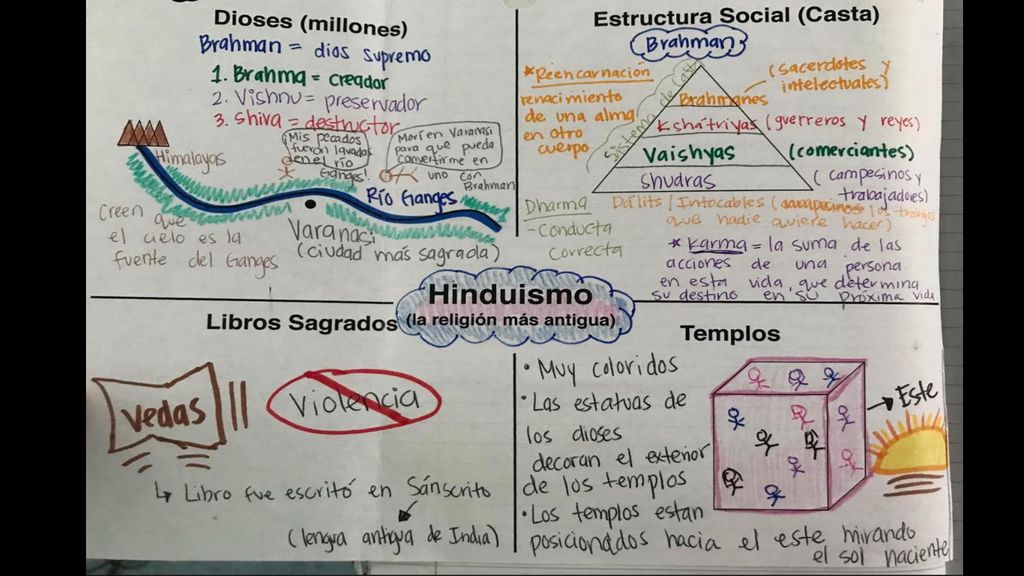 Dioses (millones)
Brahman = dios supremo
1. Brahma = creador
2. Vishnu = preservador
3. Shiva = destructor
¡Mis pecados
fueron lavados
en el río
Ganges!
Morí en Varanasi
para que pueda
convertirme en
uno con
Brahman
Himalayas
Río Ganges
Creen que
el cielo es la
fuente del Ganges
Varanasi
(ciudad más sagrada)
Estructura Social (Casta)
Brahman
*Reencarnación
renacimiento
de una alma
en otro
cuerpo
Sistema de Casta
Brahmanes
(sacerdotes y
intelectuales)
Kshatriyas (guerreros y reyes)
Vaishyas (comerciantes)
Shudras
(campesinos y
trabajadores)
Dalits / Intocables (los trabajos
que nadie quiere hacer)
Dharma
-Conducta
Correcta
*Karma = la suma de las
acciones de una persona
en esta vida, que determina
su destino en su próxima vida
Hinduismo
(la religión más antigua)
Libros Sagrados
Vedas
Violencia
↳ Libro fue escritó en Sánscrito
(lengua antigua de India)
Templos
• Muy coloridos
• Las estatuas de
los dioses
decoran el exterior
de los templos
• Los templos estan
posicionados hacia el este mirando
el sol naciente
Este